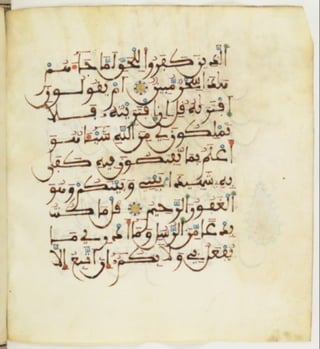 الذين كفروا للحق لما جاءهم
هذا سحر مبين ام يقولون
افتريه قل ان افتريته فلا
تملكون لي من الله شيئا هو
اعلم بما تفيضون فيه كفى
به شهيدا بيني وبينكم وهو
الغفور الرحيم قل ما كنت
بدعا من الرسل وما ادري ما
يفعل بي ولا بكم ان اتبع الا